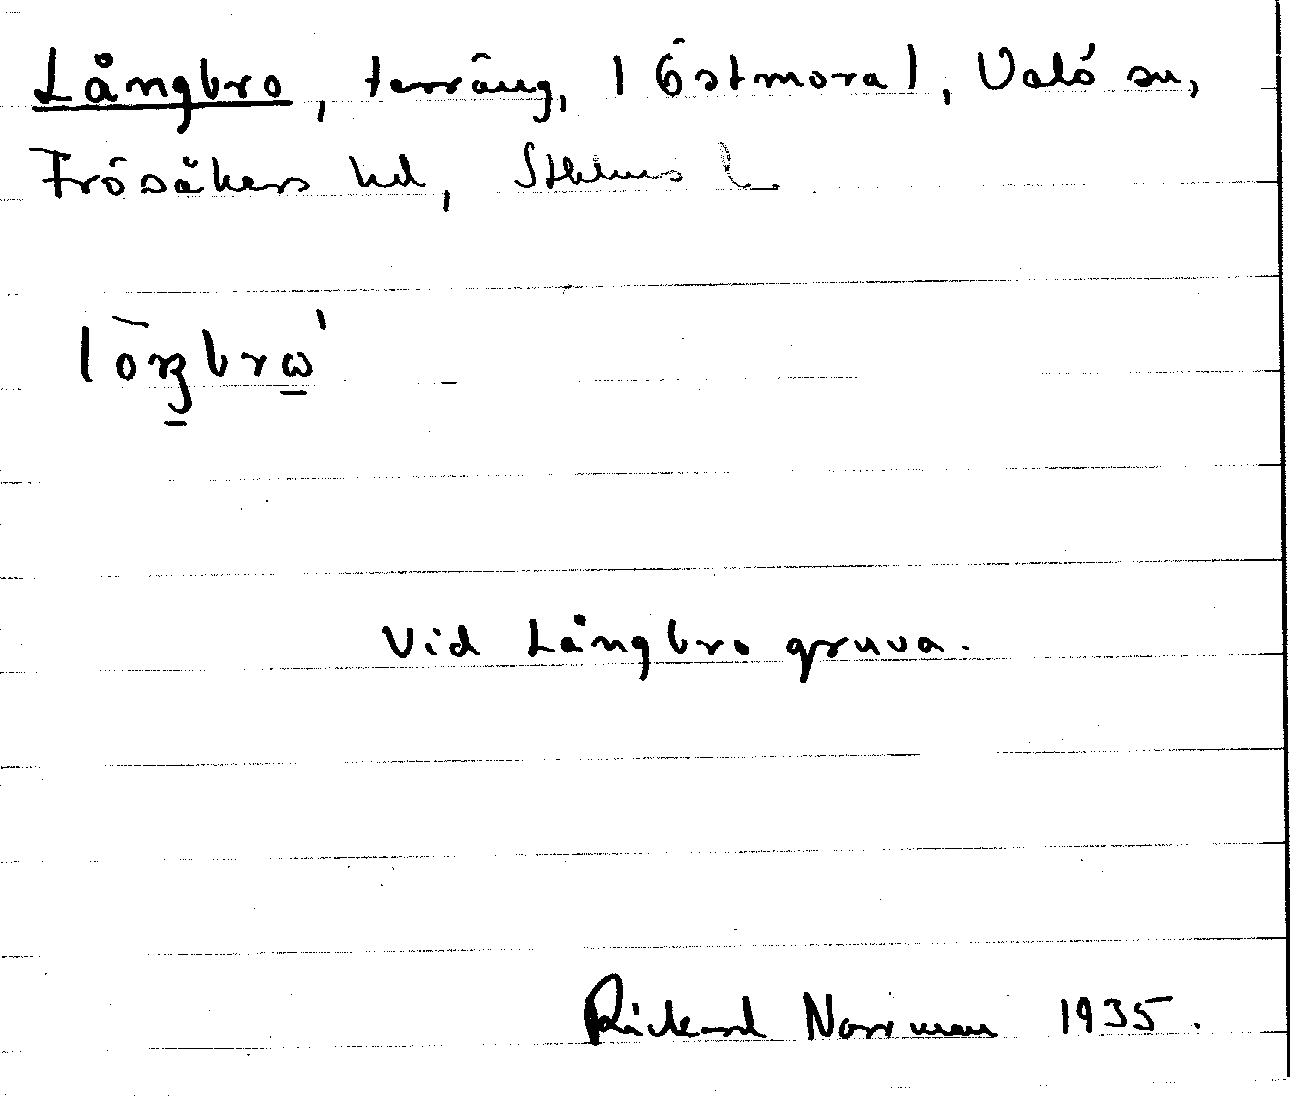 Långbro, terräng, | Östmora |, Valö sn,
Frösåkers hd, Sthlms l.
Vid Långbro gruva.
Rickard Norrman 1935.